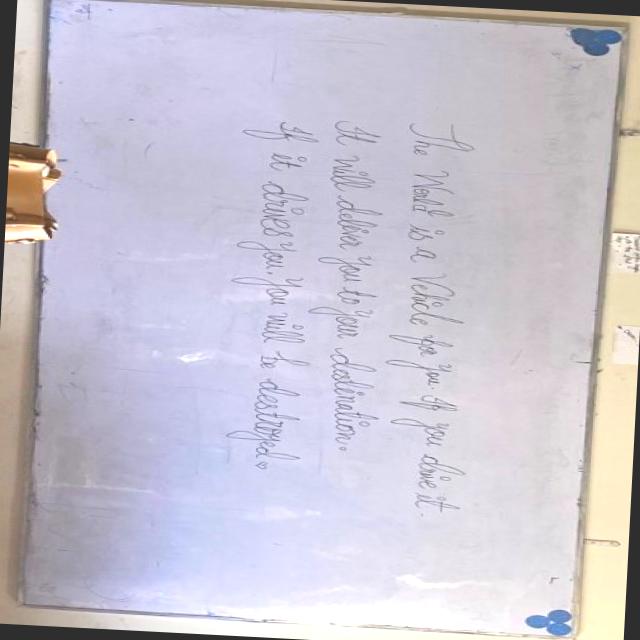 The World is a Vehicle for you if you drive it.
It will deliver you to your destination.
If it drives you, you will be destroyed.